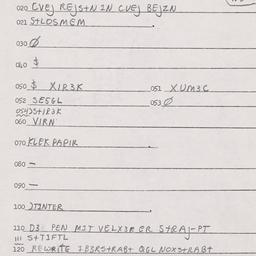 020 CVEJ REJS+N IN CVEJ BEJZN
021 S+LOSMEM
030 Ø
040 $
050 $ XIR3K 051 XUM3C
052 SE5GL 053 Ø
060 VIRN
070 KLEK PAPIR
080 —
090 —
100 JTINTER
110 D3: PEN MIT VELX3M ER S+RAJ-PT
111 S+TIFTL
120 REWRITE IB3RS+RABT QGL NOXS+RABT